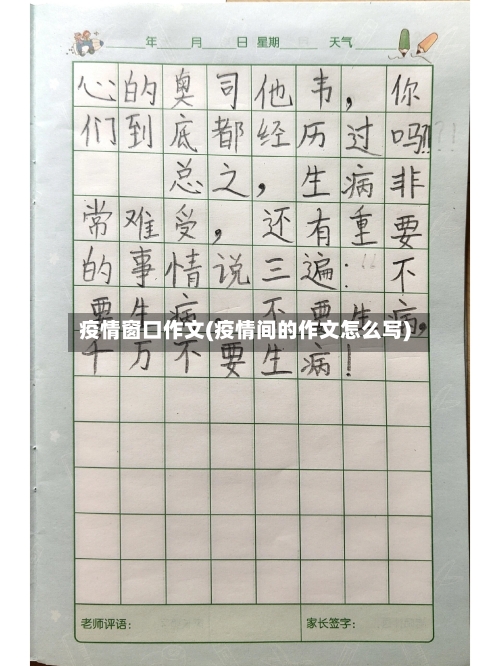 年 月 日 星期 天气
心的奥司他韦，你
们到底都经历过吗?!!
总之，生病非
常难受，还有重要
的事情说三遍：不
要生病，不要生病，
疫情窗口作文(疫情间的作文怎么写)
千万不要生病！
老师评语： 家长签字：